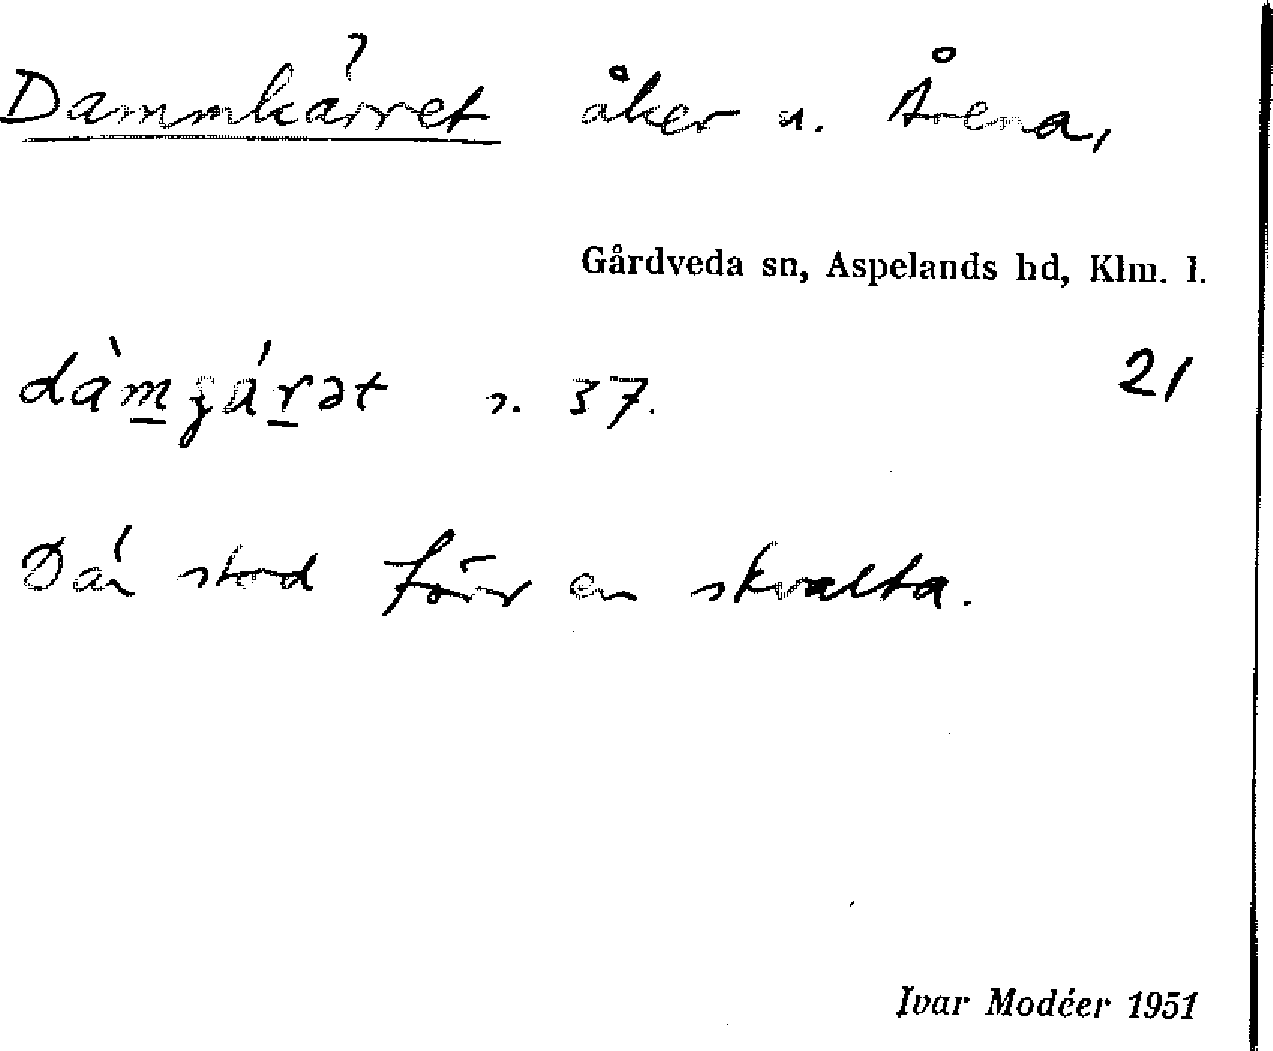 Dammkärret åker u. Årena,
Gårdveda sn, Aspelands hd, Klm. l.
s. 37. 21
Där stod förr en skvalta.
Ivar Modéer 1951